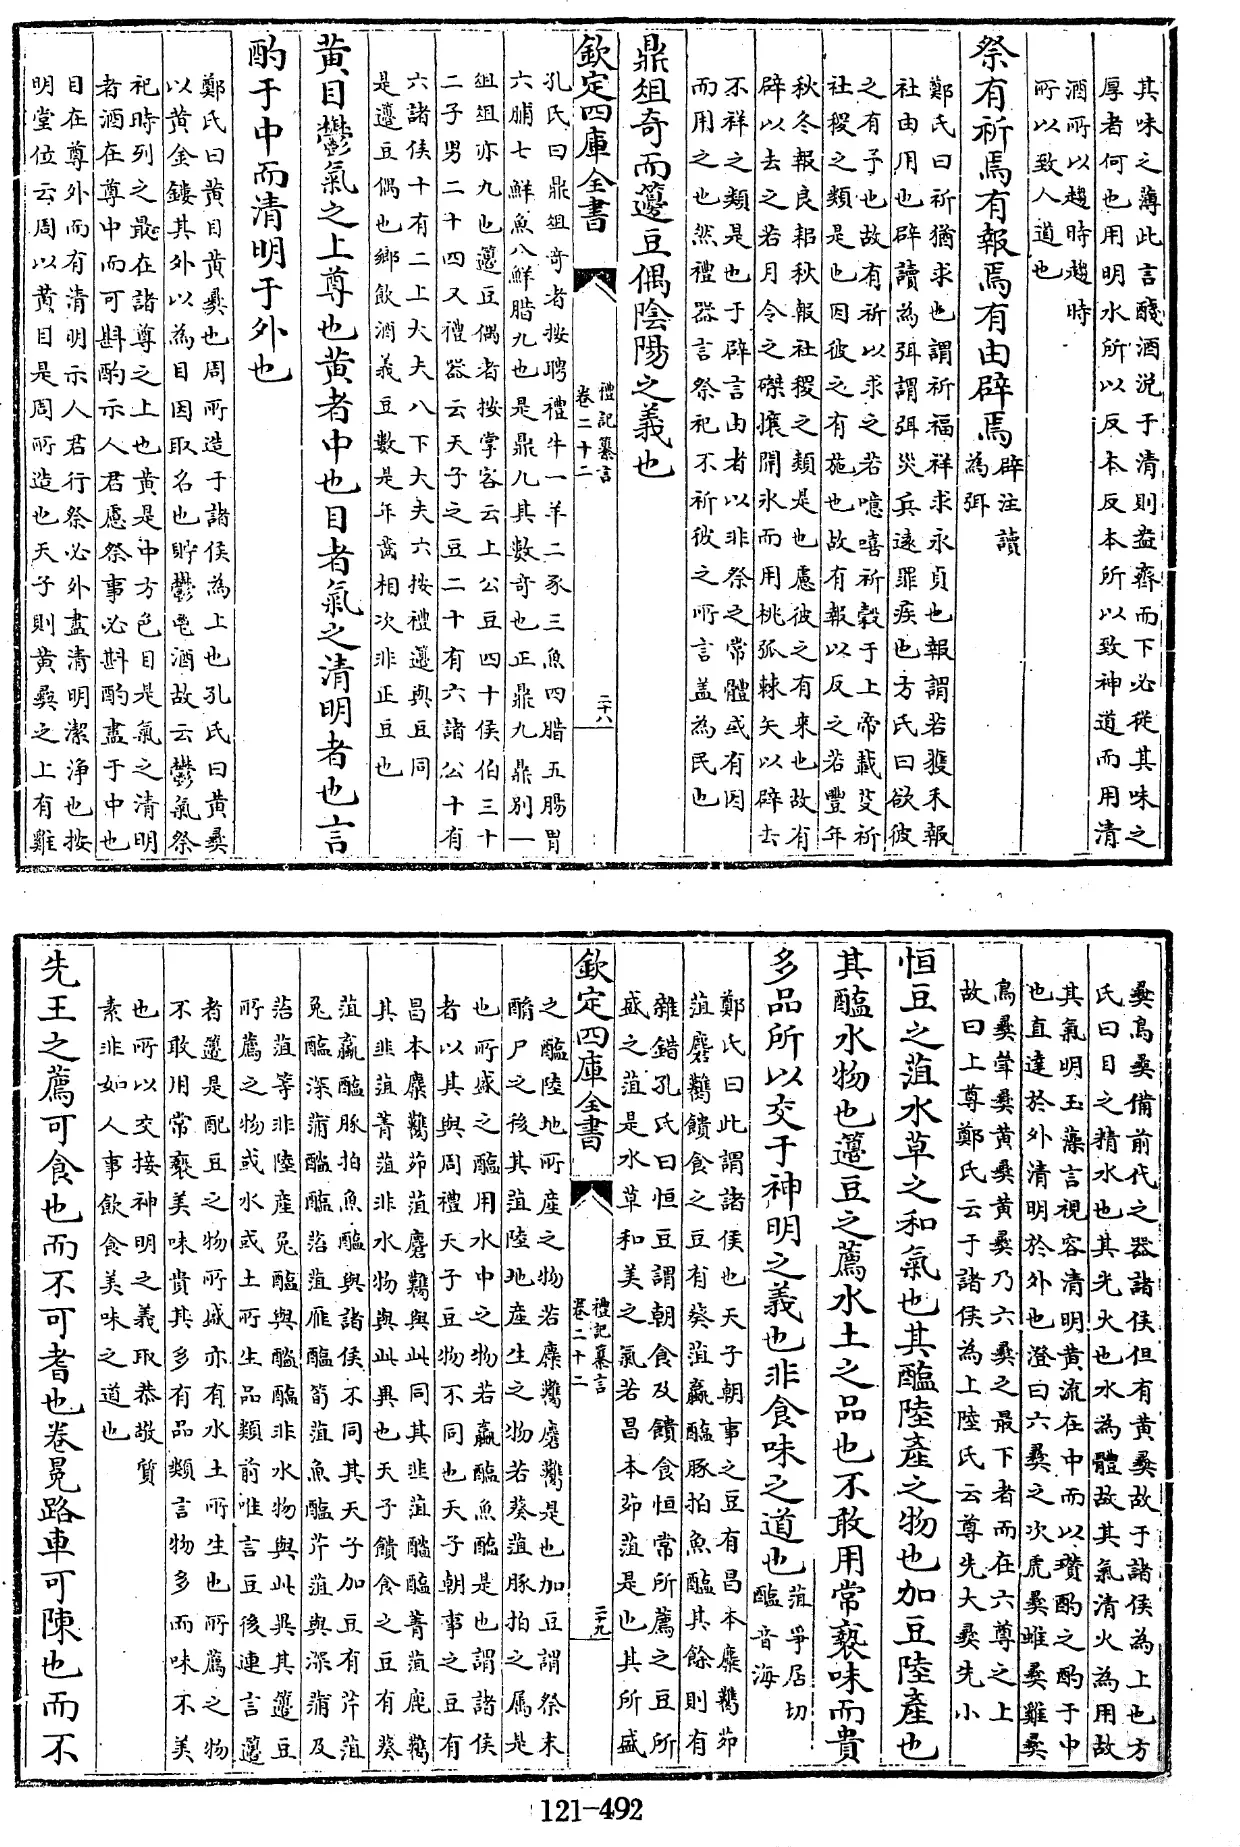 其味之薄此言醆酒涗于清則盎齊而下必從其味之
厚者何也用明水所以反本反本所以致神道而用清
酒所以趨時趨時
所以致人道也
祭有祈焉有報焉有由辟焉
辟注讀
為弭
鄭氏曰祈猶求也謂祈福祥求永貞也報謂若穫禾報
社由用也辟讀為弭謂弭災兵遠罪疾也方氏曰欲彼
之有予也故有祈以求之若噫嘻祈穀于上帝載芟祈
社稷之類是也因彼之有施也故有報以反之若豐年
秋冬報良耜秋報社稷之類是也慮彼之有来也故有
辟以去之若月令之磔攘開氷而用桃弧棘矢以辟去
不祥之類是也于辟言由者以非祭之常體或有因
而用之也然禮器言祭祀不祈彼之所言盖為民也
鼎俎奇而籩豆偶陰陽之義也
欽定四庫全書
禮記纂言
卷二十二
二十八
孔氏曰鼎俎奇者按聘禮牛一羊二豕三魚四腊五腸胃
六膚七鮮魚八鮮腊九也是鼎九其數奇也正鼎九鼎别一
俎俎亦九也籩豆偶者按掌客云上公豆四十侯伯三十
二子男二十四又禮器云天子之豆二十有六諸公十有
六諸侯十有二上大夫八下大夫六按禮籩與豆同
是籩豆偶也鄉飲酒義豆數是年齒相次非正豆也
黄目鬱氣之上尊也黄者中也目者氣之清明者也言
酌于中而清明于外也
鄭氏曰黄目黄彛也周所造于諸侯為上也孔氏曰黄彛
以黄金鏤其外以為目因取名也貯鬱鬯酒故云鬱氣祭
祀時列之最在諸尊之上也黄是中方色目是氣之清明
者酒在尊中而可斟酌示人君慮祭事必斟酌盡于中也
目在尊外而有清明示人君行祭必外盡清明潔浄也按
明堂位云周以黄目是周所造也天子則黄彛之上有雞
彛鳥彛備前代之器諸侯但有黄彛故于諸侯為上也方
氏曰目之精水也其光火也水為體故其氣清火為用故
其氣明玉藻言視容清明黄流在中而以瓚酌之酌于中
也直達於外清明於外也澄曰六彛之次虎彛蜼彛雞彛
鳥彛斝彛黄彛黄彛乃六彛之最下者而在六尊之上
故曰上尊鄭氏云于諸侯為上陸氏云尊先大彛先小
恒豆之菹水草之和氣也其醢陸產之物也加豆陸產也
其醢水物也籩豆之薦水土之品也不敢用常褻味而貴
多品所以交于神明之義也非食味之道也
菹爭居切
醢音海
鄭氏曰此謂諸侯也天子朝事之豆有昌本麋臡茆
菹麏臡饋食之豆有葵菹蠃醢豚拍魚醢其餘則有
雜錯孔氏曰恒豆謂朝食及饋食恒常所薦之豆所
盛之菹是水草和美之氣若昌本茆菹是也其所盛
欽定四庫全書
禮記纂言
卷二十二
二十九
之醢陸地所産之物若麋臡麏臡是也加豆謂祭末
酳尸之後其菹陸地產生之物若葵菹豚拍之属是
也所盛之醢用水中之物若蠃醢魚醢是也謂諸侯
者以其與周禮天子豆物不同也天子朝事之豆有
昌本麋臡茆菹麏臡與此同其韭菹醓醢菁菹鹿臡
其韭菹菁菹非水物與此異也天子饋食之豆有葵
菹蠃醢豚拍魚醢與諸侯不同其天子加豆有芹菹
兔醢深蒲醓醢箈菹雁醢筍菹魚醢芹菹與深蒲及
箈菹等非陸產兔醢與醓醢非水物與此異其籩豆
所薦之物或水或土所生品類前唯言豆後連言籩
者籩是配豆之物所盛亦有水土所生也所薦之物
不敢用常褻美味貴其多有品類言物多而味不美
也所以交接神明之義取恭敬質
素非如人事飲食美味之道也
先王之薦可食也而不可耆也卷冕路車可陳也而不
121-492